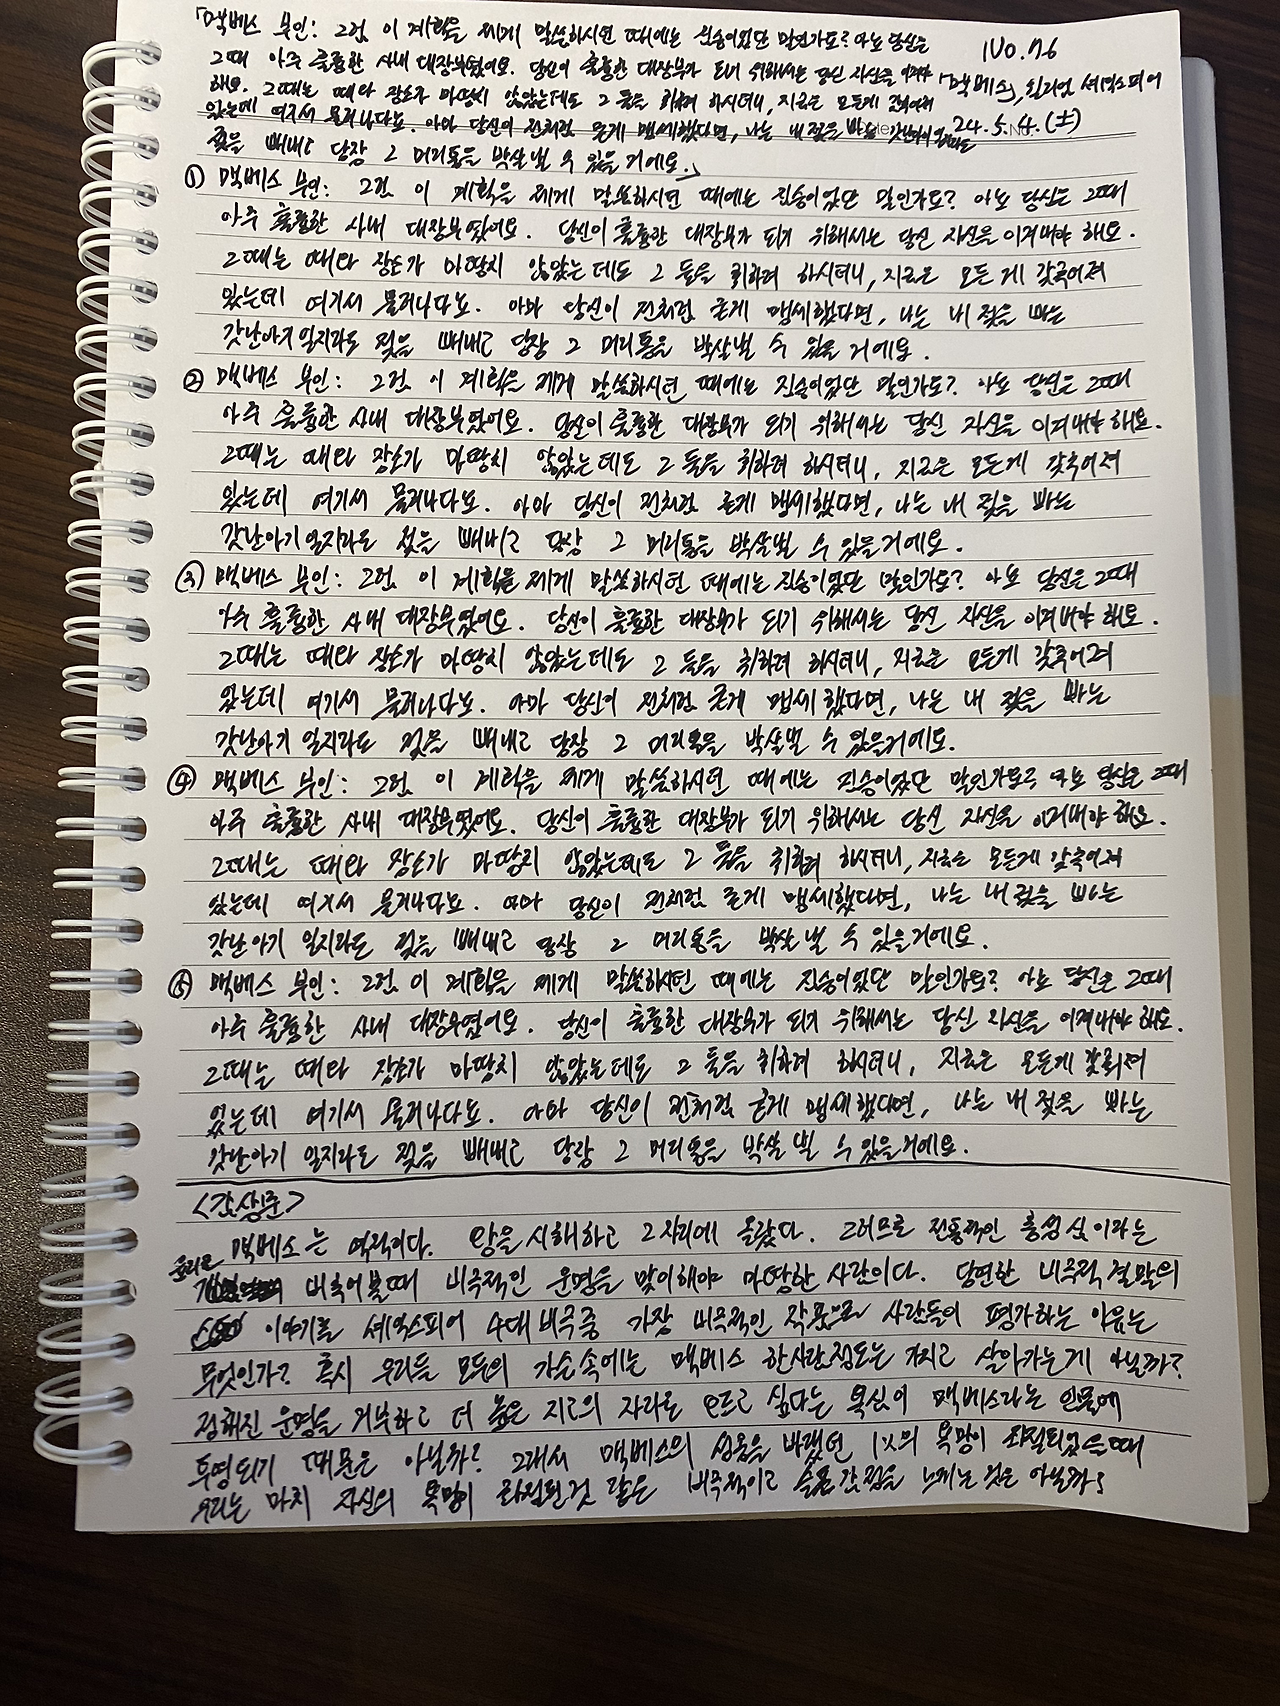 「맥베스 부인: 그럼 이 계획을 제게 말씀하시던 때에는 짐승이었단 말인가요? 아뇨 당신은
No.76
그때 아주 훌륭한 사내 대장부였어요. 당신이 훌륭한 대장부가 되기 위해서는 당신 자신을 이겨내야
해요. 그때는 때와 장소가 마땅치 않았는데도 그 둘을 취하려 하시더니, 지금은 모든게 갖추어져
「맥베스」, 윌리엄 셰익스피어
있는데 여기서 물러나다뇨. 아마 당신이 전처럼 굳게 맹세했다면, 나는 내 젖을 빠는
24. 5. 4. (土)
젖을 빼내고 당장 그 머리통을 박살낼 수 있을 거에요.」
① 맥베스 부인: 그럼 이 계획을 제게 말씀하시던 때에는 짐승이었단 말인가요? 아뇨 당신은 그때
아주 훌륭한 사내 대장부였어요. 당신이 훌륭한 대장부가 되기 위해서는 당신 자신을 이겨내야 해요.
그때는 때와 장소가 마땅치 않았는데도 그 둘을 취하려 하시더니, 지금은 모든 게 갖추어져
있는데 여기서 물러나다뇨. 아마 당신이 전처럼 굳게 맹세했다면, 나는 내 젖을 빠는
갓난아기일지라도 젖을 빼내고 당장 그 머리통을 박살낼 수 있을 거에요.
② 맥베스 부인: 그럼 이 계획을 제게 말씀하시던 때에는 짐승이었단 말인가요? 아뇨 당신은 그때
아주 훌륭한 사내 대장부였어요. 당신이 훌륭한 대장부가 되기 위해서는 당신 자신을 이겨내야 해요.
그때는 때와 장소가 마땅치 않았는데도 그 둘을 취하려 하시더니, 지금은 모든게 갖추어져
있는데 여기서 물러나다뇨. 아마 당신이 전처럼 굳게 맹세했다면, 나는 내 젖을 빠는
갓난아기일지라도 젖을 빼내고 당장 그 머리통을 박살낼 수 있을거에요.
③ 맥베스 부인: 그럼 이 계획을 제게 말씀하시던 때에는 짐승이었단 말인가요? 아뇨 당신은 그때
아주 훌륭한 사내 대장부였어요. 당신이 훌륭한 대장부가 되기 위해서는 당신 자신을 이겨내야 해요.
그때는 때와 장소가 마땅치 않았는데도 그 둘을 취하려 하시더니, 지금은 모든게 갖추어져
있는데 여기서 물러나다뇨. 아마 당신이 전처럼 굳게 맹세했다면, 나는 내 젖을 빠는
갓난아기 일지라도 젖을 빼내고 당장 그 머리통을 박살낼 수 있을거에요.
④ 맥베스 부인: 그럼 이 계획을 제게 말씀하시던 때에는 짐승이었단 말인가요? 아뇨 당신은 그때
아주 훌륭한 사내 대장부였어요. 당신이 훌륭한 대장부가 되기 위해서는 당신 자신을 이겨내야 해요.
그때는 때와 장소가 마땅치 않았는데도 그 둘을 취하려 하시더니, 지금은 모든게 갖추어져
있는데 여기서 물러나다뇨. 아마 당신이 전처럼 굳게 맹세했다면, 나는 내 젖을 빠는
갓난아기 일지라도 젖을 빼내고 당장 그 머리통을 박살 낼 수 있을거에요.
⑤ 맥베스 부인: 그럼 이 계획을 제게 말씀하시던 때에는 짐승이었단 말인가요? 아뇨 당신은 그때
아주 훌륭한 사내 대장부였어요. 당신이 훌륭한 대장부가 되기 위해서는 당신 자신을 이겨내야 해요.
그때는 때와 장소가 마땅치 않았는데도 그 둘을 취하려 하시더니, 지금은 모든게 갖춰져
있는데 여기서 물러나다뇨. 아마 당신이 전처럼 굳게 맹세했다면, 나는 내 젖을 빠는
갓난아기 일지라도 젖을 빼내고 당장 그 머리통을 박살 낼 수 있을거에요.
<감상문>
맥베스는 역적이다. 왕을 시해하고 그 자리에 올랐다. 그러므로 전통적인 충성심이라는
윤리로 비추어볼때 비극적인 운명을 맞이해야 마땅한 사람이다. 당연한 비극적 결말의
이야기를 셰익스피어 4대 비극중 가장 비극적인 작품으로 사람들이 평가하는 이유는
무엇인가? 혹시 우리들 모두의 가슴속에는 맥베스 한사람정도는 가지고 살아가는게 아닐까?
정해진 운명을 거부하고 더 높은 지고의 자리로 오르고 싶다는 욕심이 맥베스라는 인물에
투영되기 때문은 아닐까? 그래서 맥베스의 성공을 바랬던 1人의 욕망이 좌절되었을때
우리는 마치 자신의 욕망이 좌절된것 같은 비극적이고 슬픈 감정을 느끼는 것은 아닐까?